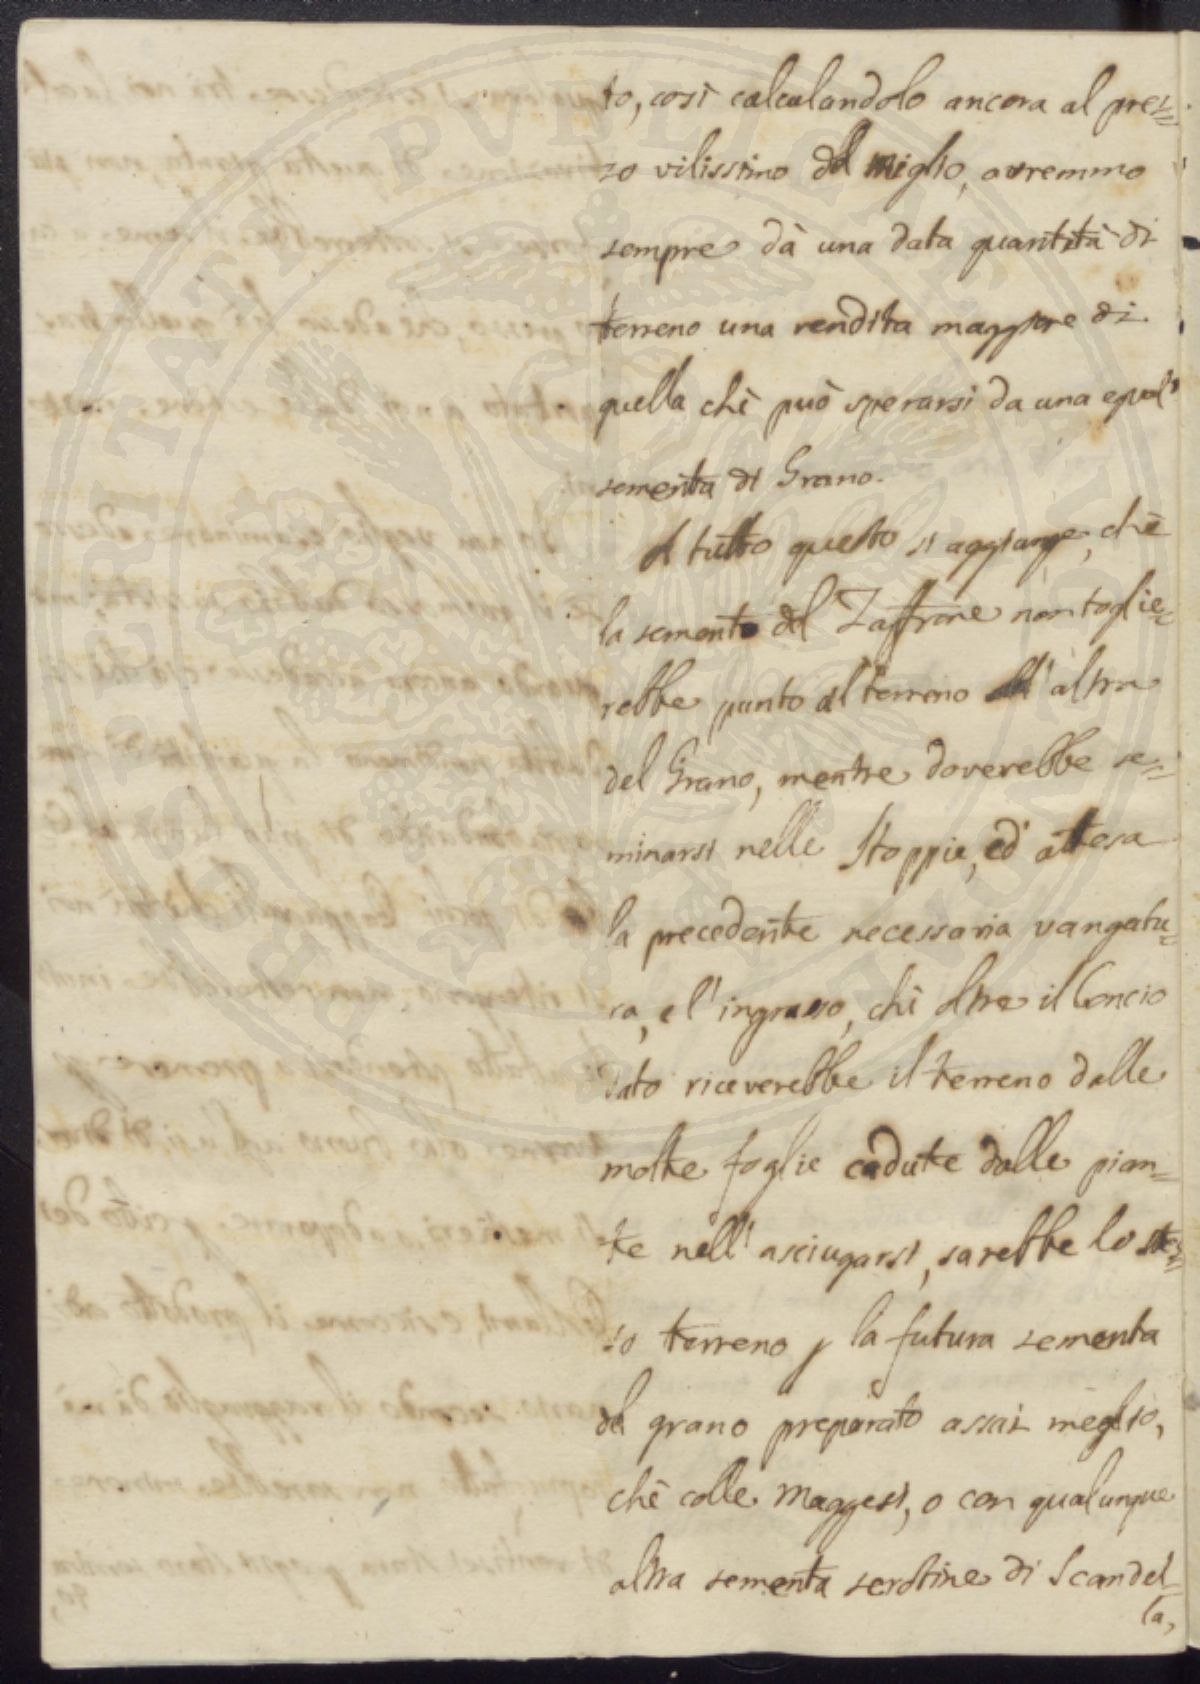 to, così calculandolo ancora al prez=
zo vilissimo del miglio, avremmo
sempre dà una data quantità di
terreno una rendita maggiore di
quella chè può sperarsi da una egual
sementa di Grano.
A tutto questo si aggiunge, chè
la sementa del Zaffrone non toglie=
rebbe punto il terreno all'altra
del Grano, mentre doverebbe se=
minarsi nelle Stoppie, ed attesa
la precedente necessaria vangatu=
ra, e l'ingrasso, chè oltre il Concio
dato riceverebbe il terreno dalle
molte foglie cadute dalle pian=
te nell'asciugarsi, sarebbe lo stes=
so terreno p la futura sementa
del grano preparato assai meglio,
chè colle Maggesi, o con qualunque
altra sementa serotine di Scandel=
la,
PROSPERITATI PVBLICAE AVGENDAE